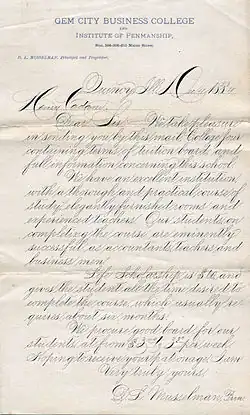 GEM CITY BUSINESS COLLEGE
AND
INSTITUTE OF PENMANSHIP,
D. L. MUSSELMAN, Principal and Proprietor.
Quincy, Ill.
Dear Sir: We take pleasure
in sending you by this mail College Jour
containing terms of tuition, board, and
full information concerning this school.
We have an excellent institution
with a thorough and practical course of
study, elegantly furnished rooms and
experienced teachers. Our students, on
completing the course, are eminently
successful as accountants, teachers, and
business men.
Life Scholarship is and
gives the student all the time desired to
complete the course, which usually re
quires about six months.
We procure good board for our
students at from to per week.
Hoping to receive your patronage, I am
Very truly yours,
D. L. Musselman, Prin.